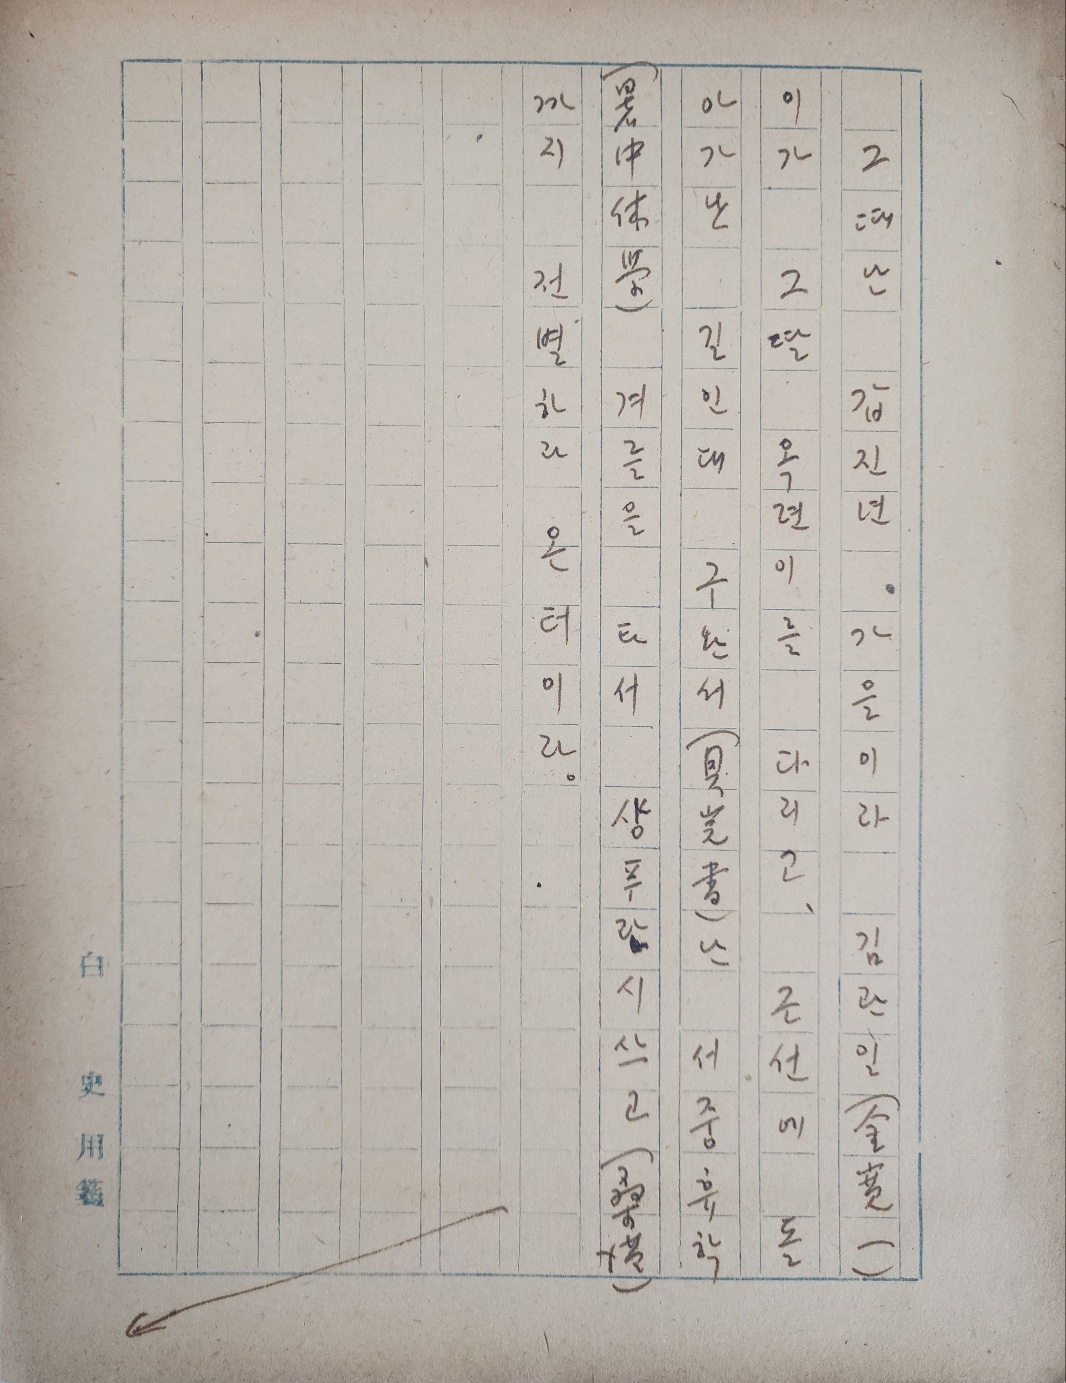 그때난 갑진년.가을이라 김관일(金寬 )
이가 그딸 옥련이를 다리고、 근선에 돌
아가난 길인대 구완서(具完書)난 서중휴학
(暑中休學) 겨를을 타서 상푸란시쓰고
까지 전별하라 온터이라。
白史用箋